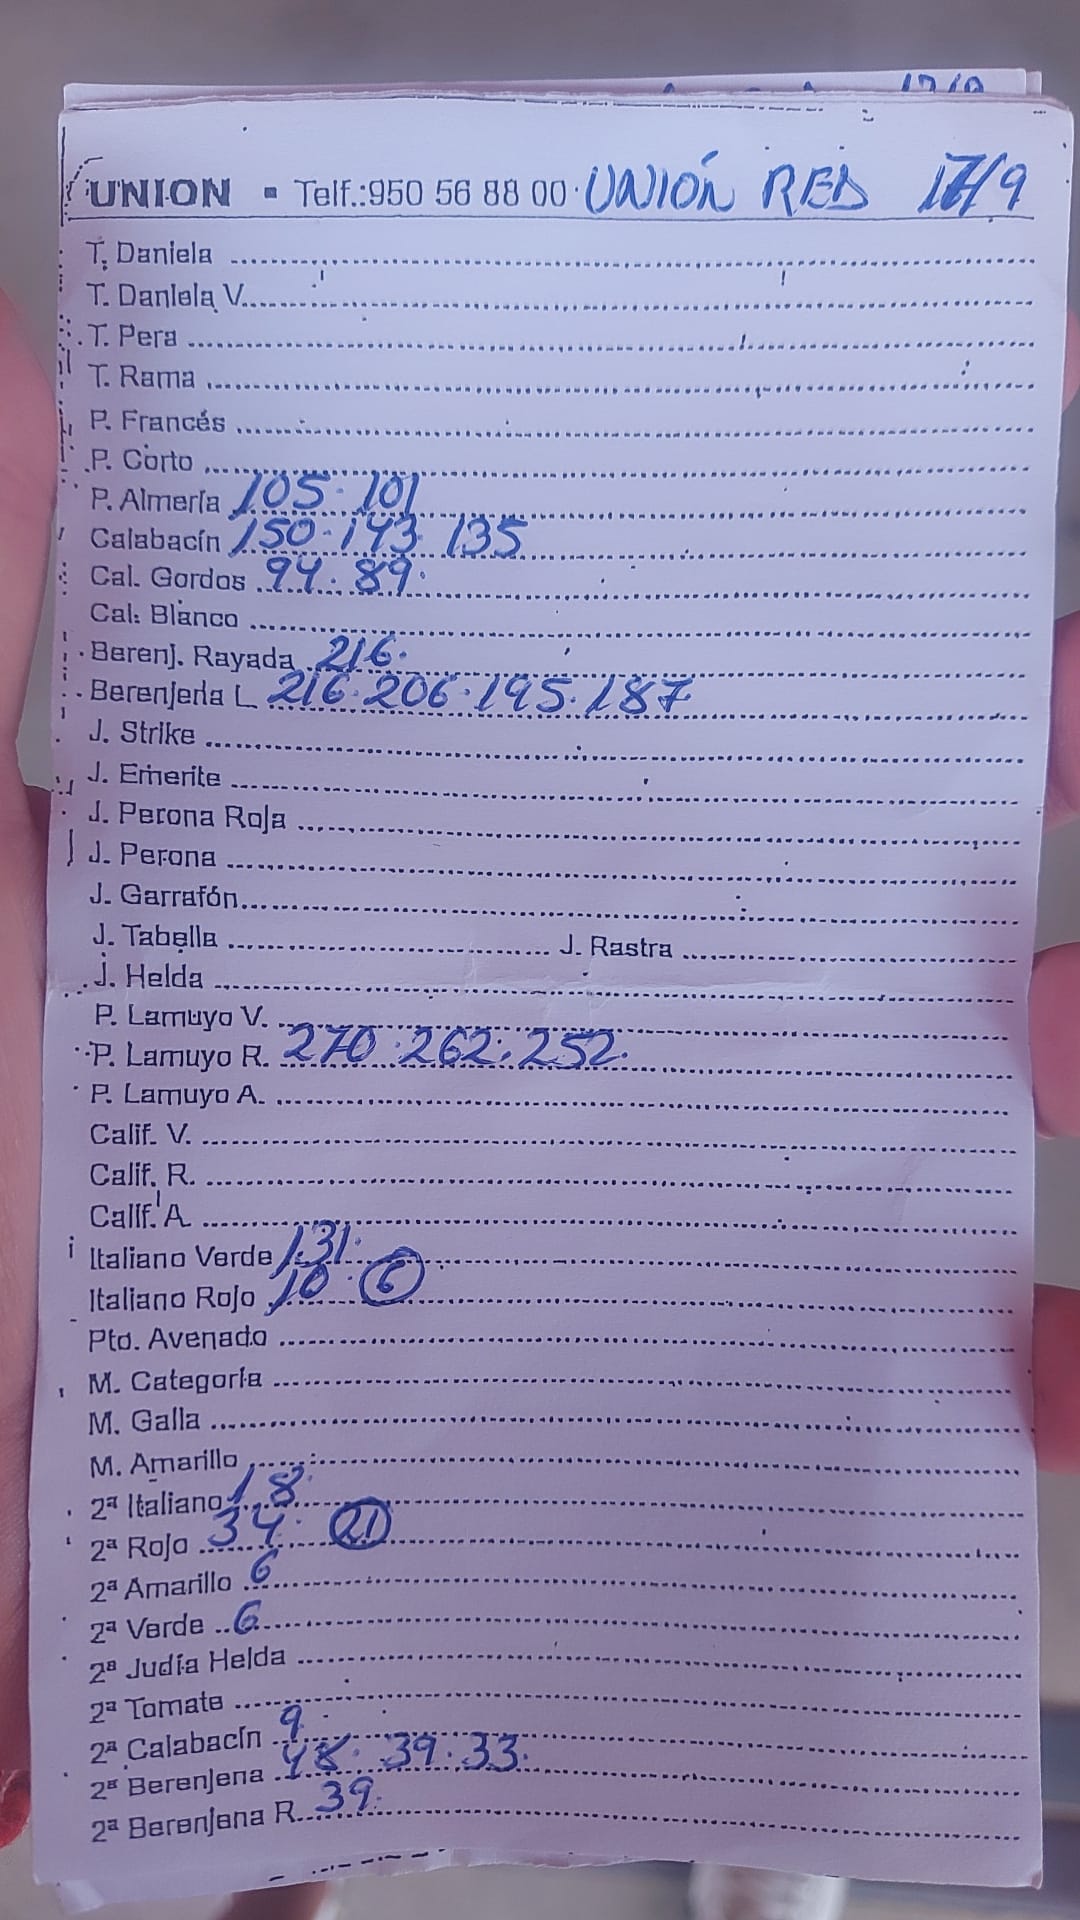 17/9
UNION - Telf.:950 56 88 00 UNIÓN RED 17/9
T. Daniela
T. Daniela V.
T. Pera
T. Rama
P. Francés
P. Corto
P. Almería 105. 101
Calabacín 150. 143 135
Cal. Gordos 94. 89.
Cal. Blanco
Berenj. Rayada 216.
Berenjena L 216. 206. 195. 187
J. Strike
J. Emerite
J. Perona Roja
J. Perona
J. Garrafón
J. Tabella J. Rastra
J. Helda
P. Lamuyo V.
P. Lamuyo R. 270. 262. 252.
P. Lamuyo A.
Calif. V.
Calif. R.
Calif. A
Italiano Verde 131.
Italiano Rojo 10. 6
Pto. Avenado
M. Categoría
M. Galia
M. Amarillo
2ª Italiano 18.
2ª Rojo 34. 21
2ª Amarillo 6
2ª Verde 6
2ª Judía Helda
2ª Tomate
2ª Calabacín 9.
2ª Berenjena 48. 39. 33.
2ª Berenjena R. 39.